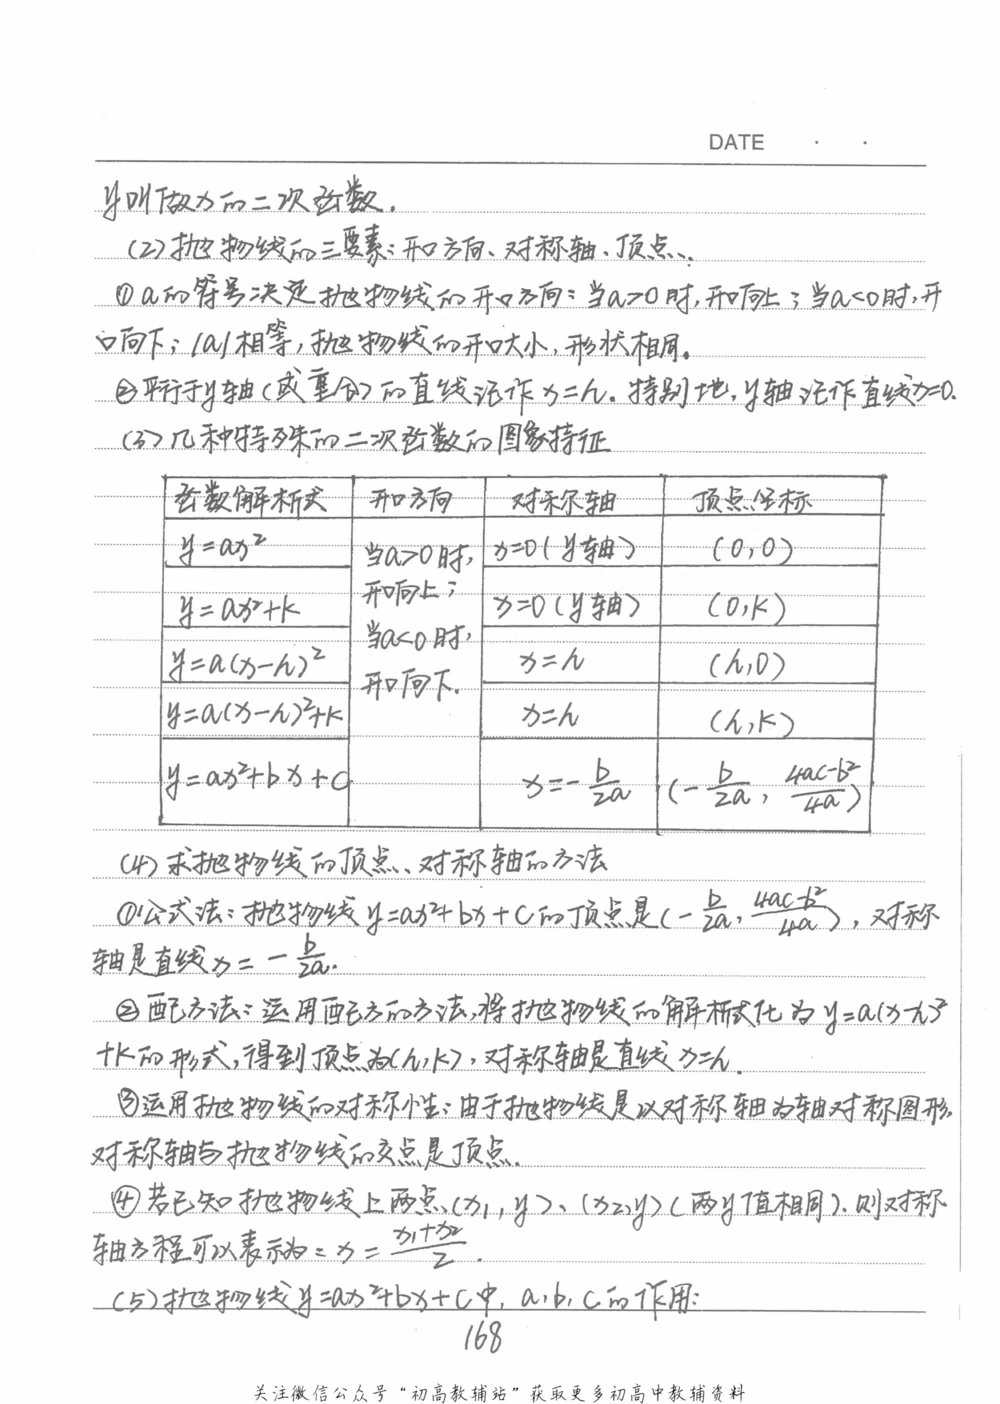 DATE · ·
y叫做x的二次函数.
(2)抛物线的三要素:开口方向、对称轴、顶点、.
①a的符号决定抛物线的开口方向:当a>0时,开口向上;当a<0时,开
口向下;|a|相等,抛物线的开口大小,形状相同。
②平行于y轴(或重合)的直线记作x=h。特别地,y轴记作直线x=0.
(3)几种特殊的二次函数的图象特征
函数解析式 开口方向 对称轴 顶点坐标
y=ax² 当a>0时,开口向上;当a<0时,开口向下. x=0(y轴) (0,0)
y=ax²+k x=0(y轴) (0,k)
y=a(x-h)² x=h (h,0)
y=a(x-h)²+k x=h (h,k)
y=ax²+bx+c x=-b/2a (-b/2a, 4ac-b²/4a)
(4)求抛物线的顶点、对称轴的方法
①公式法:抛物线y=ax²+bx+c的顶点是(-b/2a, 4ac-b²/4a),对称
轴是直线x=-b/2a.
②配方法:运用配方的方法,将抛物线的解析式化为y=a(x-h)²
+k的形式,得到顶点为(h,k),对称轴是直线x=h.
③运用抛物线的对称性:由于抛物线是以对称轴为轴对称图形,
对称轴与抛物线的交点是顶点.
④若已知抛物线上两点(x₁,y)、(x₂,y)(两y值相同).则对称
轴方程可以表示为:x=x₁+x₂/2.
(5)抛物线y=ax²+bx+c中,a,b,c的作用:
168
关注微信公众号“初高教辅站”获取更多初高中教辅资料